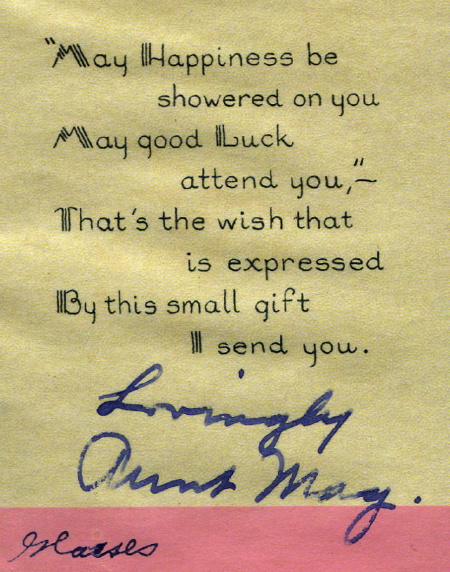 "May Happiness be
showered on you
May good Luck
attend you,"~
That's the wish that
is expressed
By this small gift
I send you.
Lovingly
Aunt May.
Glasses